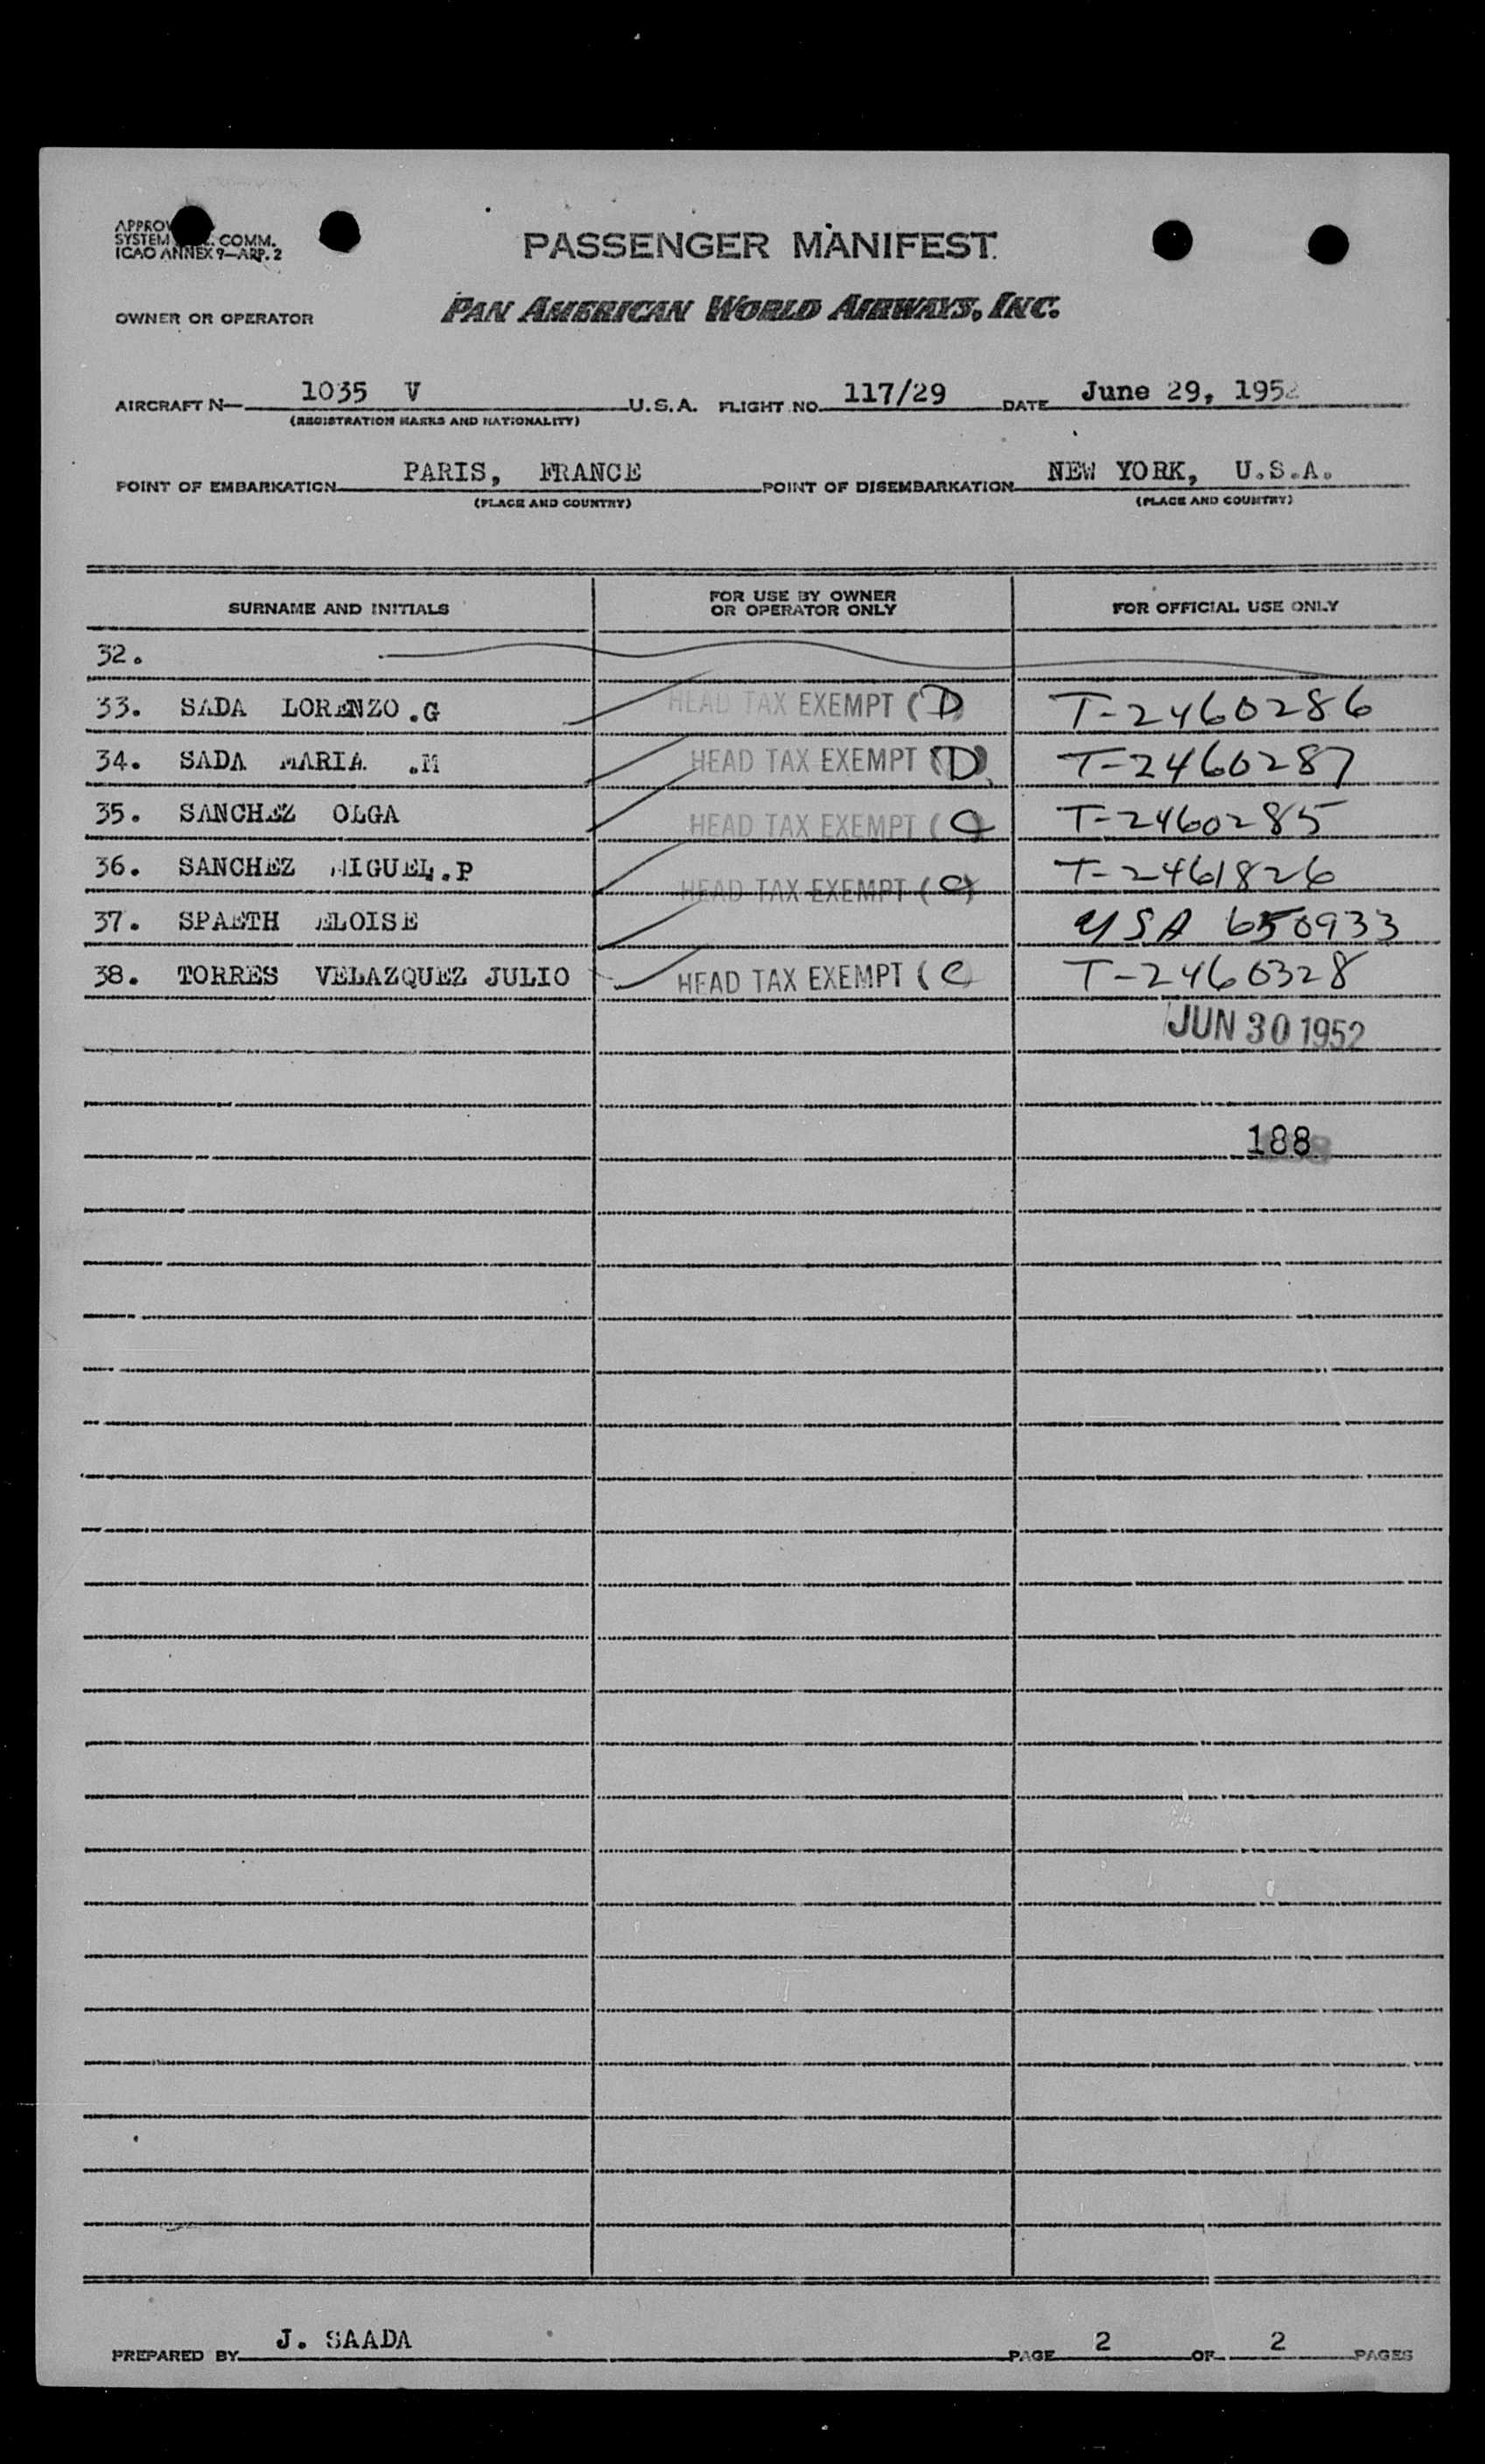 PASSENGER MANIFEST
SYSTEM COMM.
ICAO ANNEX 9—ARP. 2
OWNER OR OPERATOR PAN AMERICAN WORLD AIRWAYS, INC.
AIRCRAFT N— 1035 V U.S.A. FLIGHT NO. 117/29 DATE June 29, 1952
(REGISTRATION MARKS AND NATIONALITY)
POINT OF EMBARKATION PARIS, FRANCE POINT OF DISEMBARKATION NEW YORK, U.S.A.
(PLACE AND COUNTRY) (PLACE AND COUNTRY)
SURNAME AND INITIALS FOR USE BY OWNER OR OPERATOR ONLY FOR OFFICIAL USE ONLY
32.
33. SADA LORENZO .G HEAD TAX EXEMPT (D) T-2460286
34. SADA MARIA .M HEAD TAX EXEMPT (D) T-2460287
35. SANCHEZ OLGA HEAD TAX EXEMPT (C) T-2460285
36. SANCHEZ MIGUEL.P HEAD TAX EXEMPT (C) T-2461826
37. SPAETH ELOISE USA 650933
38. TORRES VELAZQUEZ JULIO HEAD TAX EXEMPT (C T-2460328
JUN 30 1952
188
PREPARED BY J. SAADA PAGE 2 OF 2 PAGES